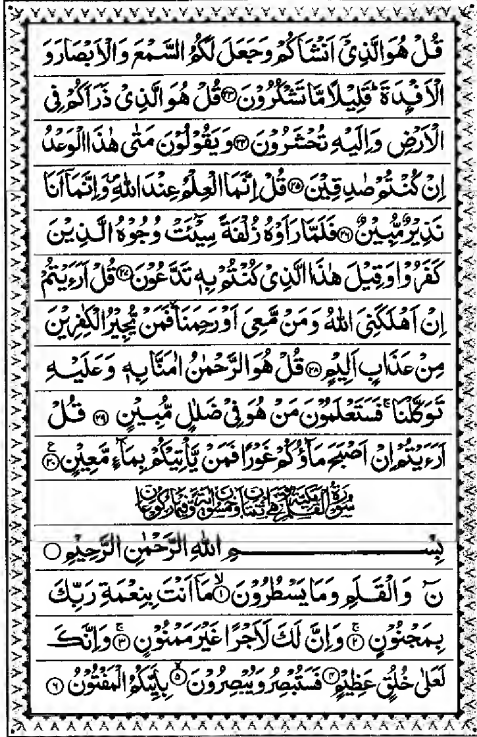 قُلْ هُوَ الَّذِىْٓ اَنْشَاَكُمْ وَجَعَلَ لَكُمُ السَّمْعَ وَالْاَبْصَارَ وَ
الْاَفْـِٕدَةَ ؕ قَلِيْلًا مَّا تَشْكُرُوْنَ ۝۲۳ قُلْ هُوَ الَّذِىْ ذَرَاَكُمْ فِى
الْاَرْضِ وَاِلَيْهِ تُحْشَرُوْنَ ۝۲۴ وَيَقُوْلُوْنَ مَتٰى هٰذَا الْوَعْدُ
اِنْ كُنْتُمْ صٰدِقِيْنَ ۝۲۵ قُلْ اِنَّمَا الْعِلْمُ عِنْدَ اللّٰهِ ۪ وَاِنَّمَآ اَنَا
نَذِيْرٌ مُّبِيْنٌ ۝۲۶ فَلَمَّا رَاَوْهُ زُلْفَةً سِيْٓـَٔتْ وُجُوْهُ الَّذِيْنَ
كَفَرُوْا وَقِيْلَ هٰذَا الَّذِىْ كُنْتُمْ بِهٖ تَدَّعُوْنَ ۝۲۷ قُلْ اَرَءَيْتُمْ
اِنْ اَهْلَكَنِىَ اللّٰهُ وَمَنْ مَّعِىَ اَوْ رَحِمَنَا ۙ فَمَنْ يُّجِيْرُ الْكٰفِرِيْنَ
مِنْ عَذَابٍ اَلِيْمٍ ۝۲۸ قُلْ هُوَ الرَّحْمٰنُ اٰمَنَّا بِهٖ وَعَلَيْهِ
تَوَكَّلْنَا ۚ فَسَتَعْلَمُوْنَ مَنْ هُوَ فِىْ ضَلٰلٍ مُّبِيْنٍ ۝۲۹ قُلْ
اَرَءَيْتُمْ اِنْ اَصْبَحَ مَآؤُكُمْ غَوْرًا فَمَنْ يَّاْتِيْكُمْ بِمَآءٍ مَّعِيْنٍ ۝۳۰ ع
سورة القلم مكية وهى اثنتان وخمسون اية وفيها ركوعان
بِسْمِ اللّٰهِ الرَّحْمٰنِ الرَّحِيْمِ ۝
نٓ وَالْقَلَمِ وَمَا يَسْطُرُوْنَ ۙ۝۱ مَآ اَنْتَ بِنِعْمَةِ رَبِّكَ
بِمَجْنُوْنٍ ۚ۝۲ وَاِنَّ لَكَ لَاَجْرًا غَيْرَ مَمْنُوْنٍ ۚ۝۳ وَاِنَّكَ
لَعَلٰى خُلُقٍ عَظِيْمٍ ۝۴ فَسَتُبْصِرُ وَيُبْصِرُوْنَ ۙ۝۵ بِاَيِّىكُمُ الْمَفْتُوْنُ ۝۶